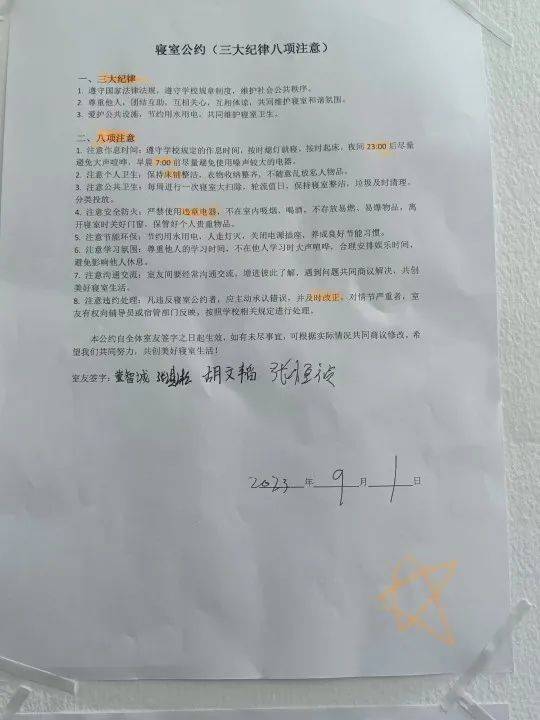 寝室公约（三大纪律八项注意）
一、三大纪律
1. 遵守国家法律法规，遵守学校规章制度，维护社会公共秩序。
2. 尊重他人，团结互助，互相关心，互相体谅，共同维护寝室和谐氛围。
3. 爱护公共设施，节约用水用电，共同维护寝室卫生。
二、八项注意
1. 注意作息时间：遵守学校规定的作息时间，按时熄灯就寝，按时起床，夜间 23:00 后尽量
避免大声喧哗，早晨 7:00 前尽量避免使用噪声较大的电器。
2. 注意个人卫生：保持床铺整洁，衣物收纳整齐，不随意乱放私人物品。
3. 注意公共卫生：每周进行一次寝室大扫除，轮流值日，保持寝室整洁，垃圾及时清理、
分类投放。
4. 注意安全防火：严禁使用违章电器，不在室内吸烟、喝酒，不存放易燃、易爆物品，离
开寝室时关好门窗，保管好个人贵重物品。
5. 注意节能环保：节约用水用电，人走灯灭，关闭电源插座，养成良好节能习惯。
6. 注意学习氛围：尊重他人的学习时间，不在他人学习时大声喧哗，合理安排娱乐时间，
避免影响他人休息。
7. 注意沟通交流：室友间要经常沟通交流，增进彼此了解，遇到问题共同商议解决，共创
美好寝室生活。
8. 注意违约处理：凡违反寝室公约者，应主动承认错误，并及时改正，对情节严重者，室
友有权向辅导员或宿管部门反映，按照学校相关规定进行处理。
本公约自全体室友签字之日起生效，如有未尽事宜，可根据实际情况共同商议修改，希
望我们共同努力，共创美好寝室生活！
室友签字：董智诚 胡文韬
2023 年 9 月 1 日